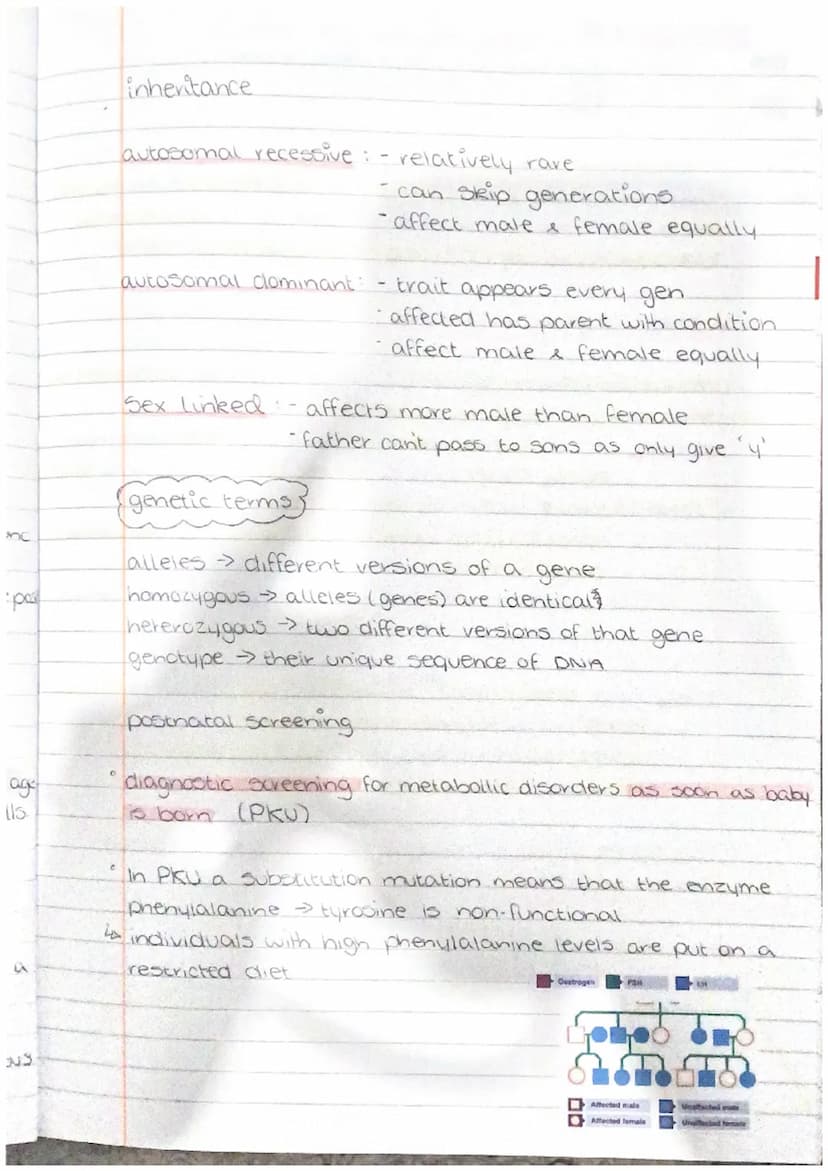 inheritance
autosomal recessive : - relatively rare
- can skip generations
- affect male & female equally
autosomal dominant: - trait appears every gen
- affected has parent with condition
- affect male & female equally
Sex linked : - affects more male than female
- father can't pass to sons as only give 'y'
genetic terms
alleles → different versions of a gene
homozygous → alleles (genes) are identical
heterozygous → two different versions of that gene
genotype → their unique sequence of DNA
postnatal screening
° diagnostic screening for metabollic disorders as soon as baby
is born (PKU)
° In PKU a substitution mutation means that the enzyme
phenylalanine → tyrosine is non-functional
↳ individuals with high phenylalanine levels are put on a
restricted diet
Oestrogen FSH LH
Affected male Unaffected male
Affected female Unaffected female